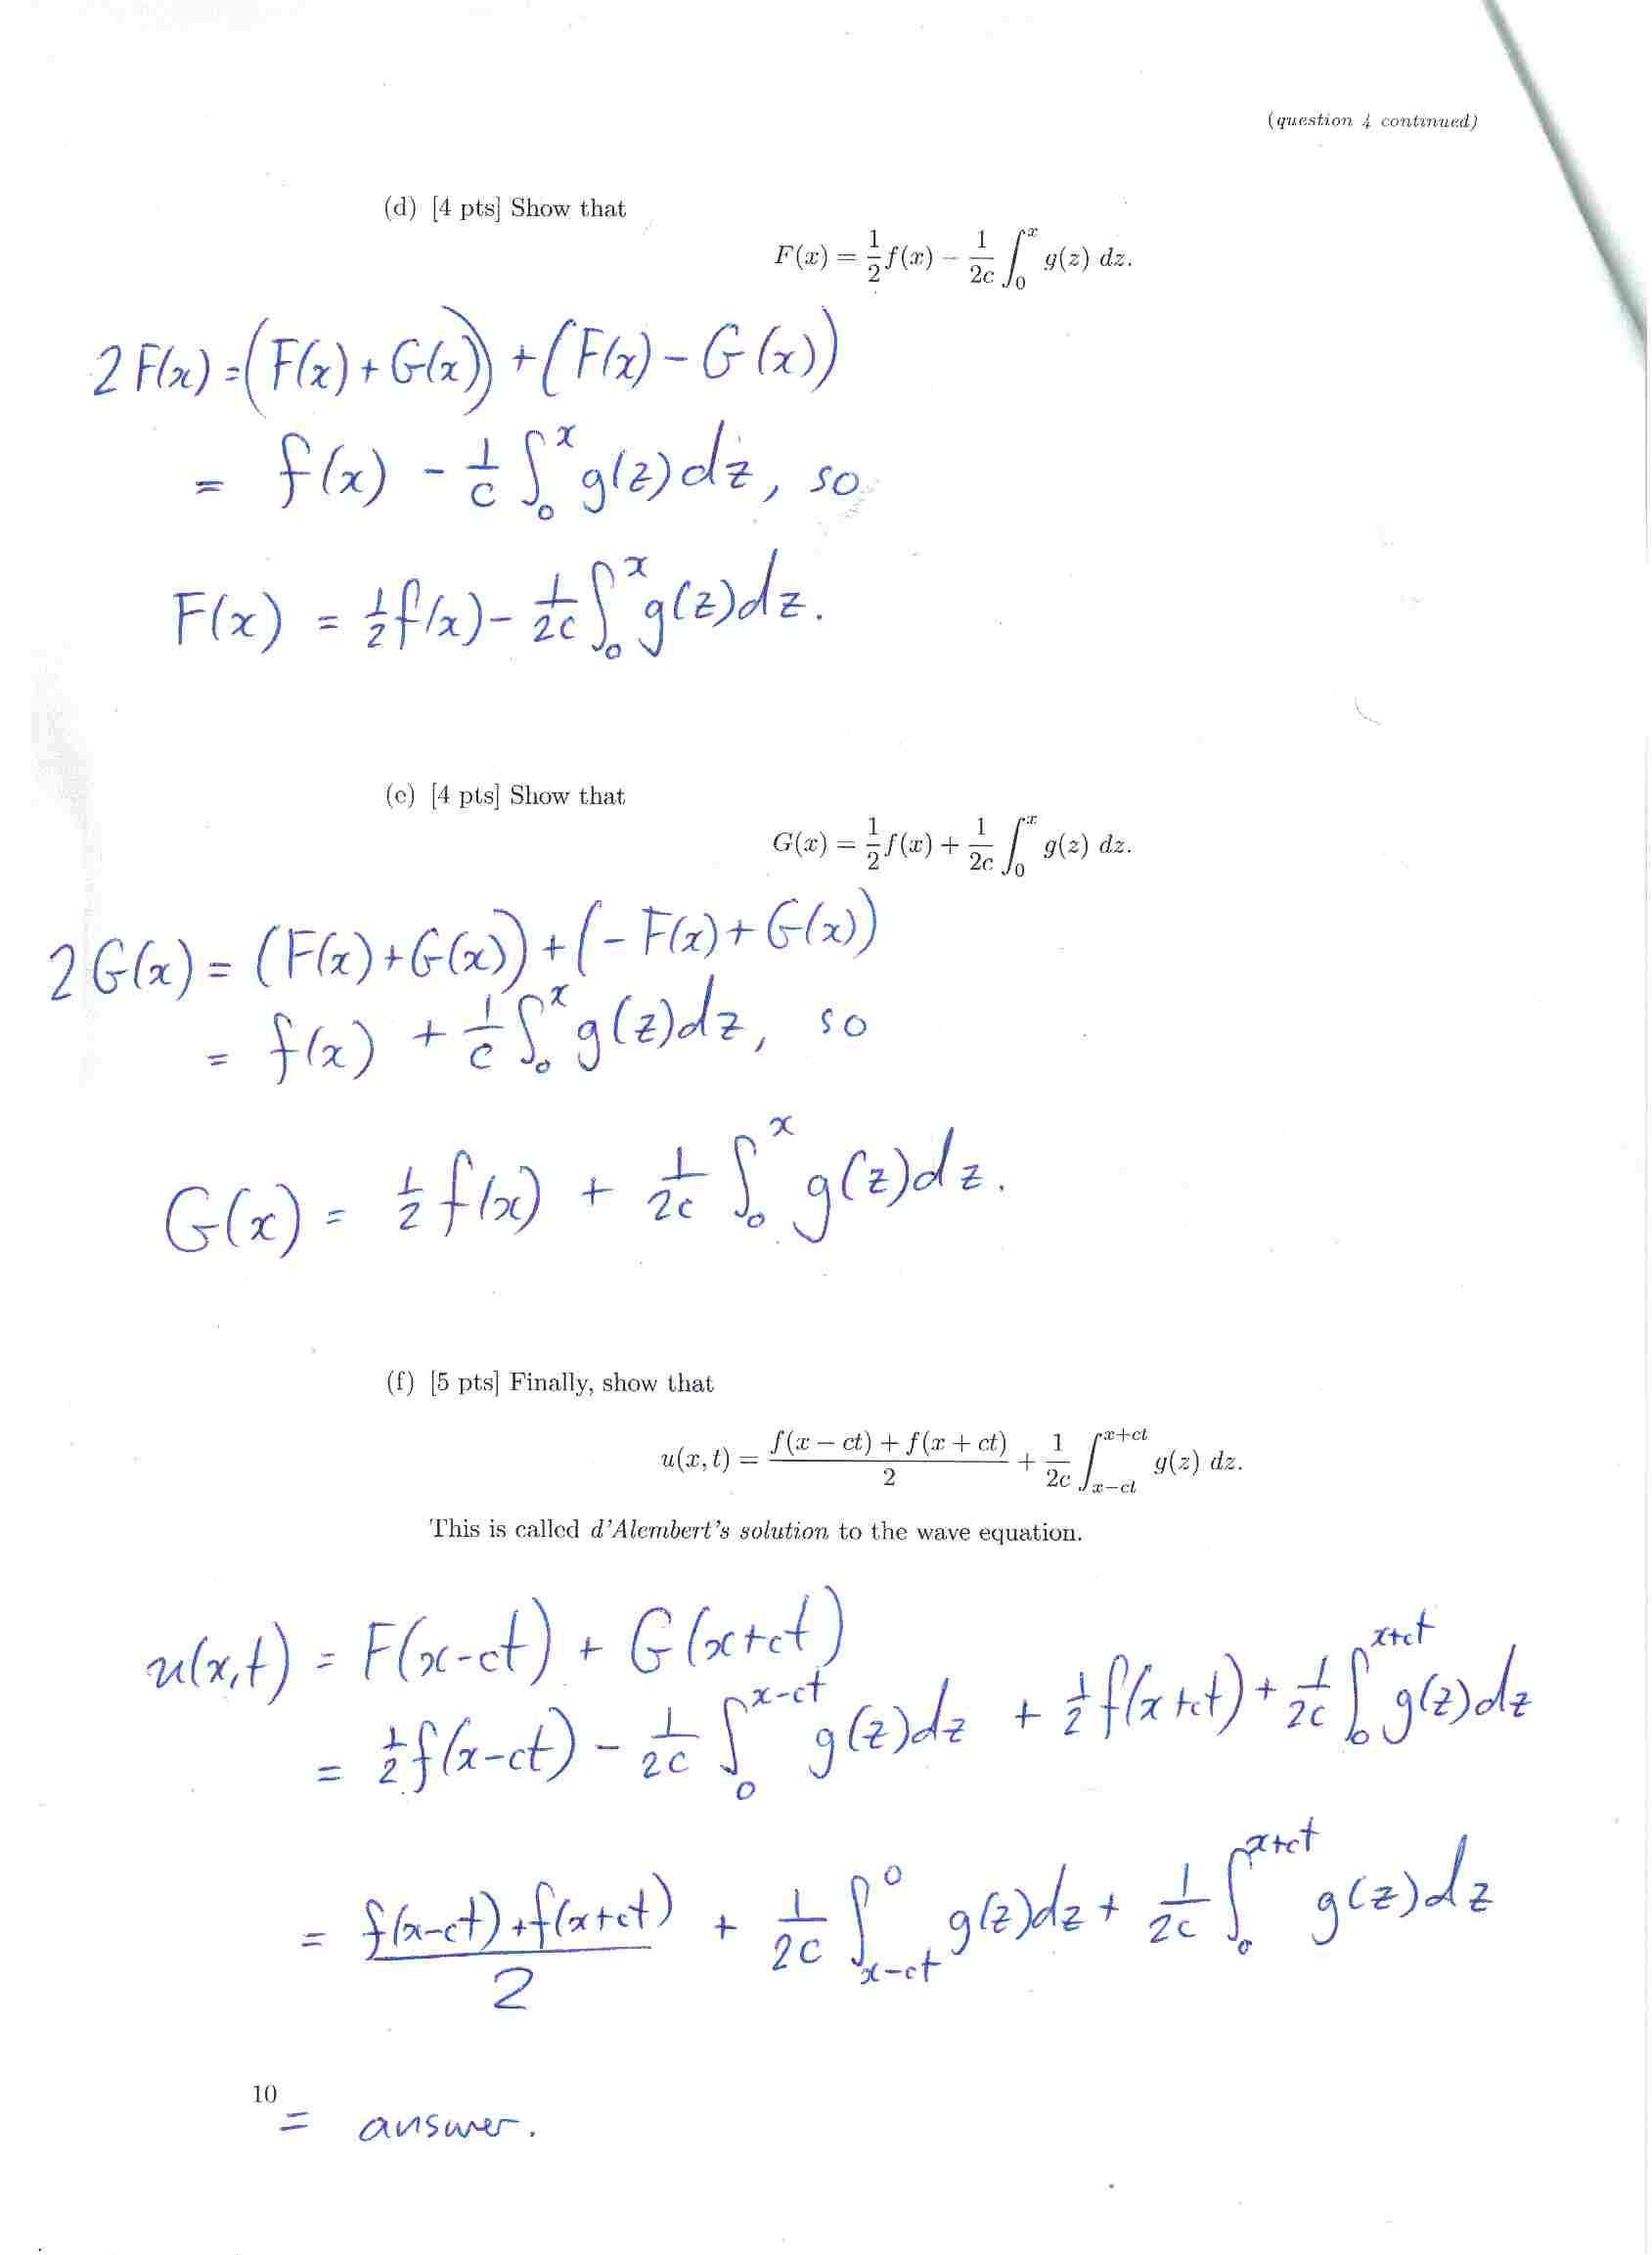 (question 4 continued)
(d) [4 pts] Show that
F(x) = \frac{1}{2} f(x) − \frac{1}{2c} \int_0^x g(z) dz.
2F(x) = (F(x) + G(x)) + (F(x) − G(x))
= f(x) − \frac{1}{c} \int_0^x g(z) dz, so
F(x) = \frac{1}{2} f(x) − \frac{1}{2c} \int_0^x g(z) dz.
(e) [4 pts] Show that
G(x) = \frac{1}{2} f(x) + \frac{1}{2c} \int_0^x g(z) dz.
2G(x) = (F(x) + G(x)) + (−F(x) + G(x))
= f(x) + \frac{1}{c} \int_0^x g(z) dz, so
G(x) = \frac{1}{2} f(x) + \frac{1}{2c} \int_0^x g(z) dz.
(f) [5 pts] Finally, show that
u(x, t) = \frac{f(x − ct) + f(x + ct)}{2} + \frac{1}{2c} \int_{x−ct}^{x+ct} g(z) dz.
This is called d'Alembert's solution to the wave equation.
u(x,t) = F(x−ct) + G(x+ct)
= \frac{1}{2} f(x−ct) − \frac{1}{2c} \int_0^{x−ct} g(z) dz + \frac{1}{2} f(x+ct) + \frac{1}{2c} \int_0^{x+ct} g(z) dz
= \frac{f(x−ct) + f(x+ct)}{2} + \frac{1}{2c} \int_{x−ct}^0 g(z) dz + \frac{1}{2c} \int_0^{x+ct} g(z) dz
10
= answer.